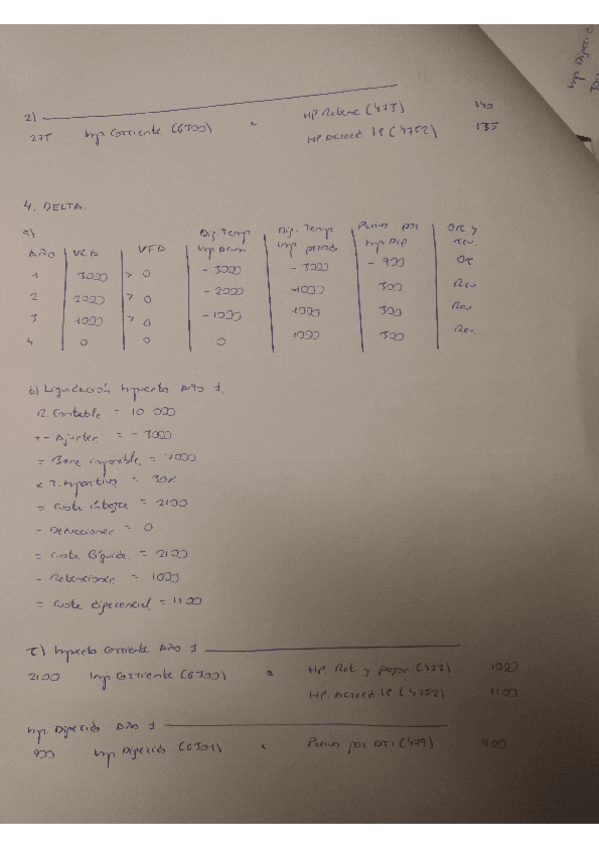 2)
HP. Retenc (473) 140
275 Imp Corriente (6300) a
HP. Acreed IS (4752) 135
4. DELTA.
a)
AÑO | VCA | VFA | Dif. Temp Imp Acum | Dif. Temp Imp periodo | Pasivo por Imp Dif | Ori y rev.
1 | 3000 > 0 | - 3000 | - 3000 | - 900 | Ori
2 | 2000 > 0 | - 2000 | 1000 | 300 | Rev
3 | 1000 > 0 | - 1000 | 1000 | 300 | Rev
4 | 0 | 0 | 0 | 1000 | 300 | Rev
b) Liquidación Impuesto Año 1.
R. Contable = 10 000
+- Ajustes = - 3000
= Base imponible = 7000
x T. Impositivo = 30%
= cuota íntegra = 2100
- Deducciones = 0
= cuota líquida = 2100
- Retenciones = 1000
= cuota diferencial = 1100
c) Impuesto Corriente Año 1
2100 Imp Corriente (6300) a HP. Ret y pagos (473) 1000
HP. Acreed IS (4752) 1100
Imp. Diferido Año 1
900 Imp Diferido (6301) a Pasivo por DTI (479) 900